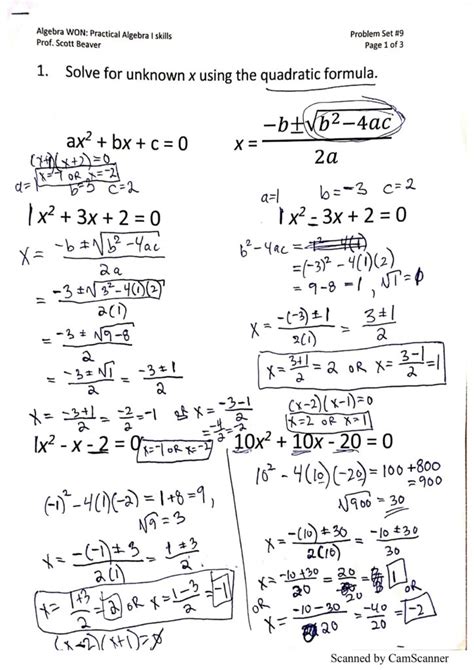 Algebra WON: Practical Algebra I skills
Prof. Scott Beaver
Problem Set #9
Page 1 of 3
1. Solve for unknown x using the quadratic formula.
ax² + bx + c = 0
x = (-b±√(b²-4ac))/2a
(x+1)(x+2)=0
x=-1 OR x=-2
a=1 b=3 c=2
1x² + 3x + 2 = 0
x = (-b ± √(b²-4ac))/2a
= (-3 ± √(3²-4(1)(2)))/2(1)
= (-3 ± √(9-8))/2
= (-3 ± √1)/2 = (-3 ± 1)/2
x = (-3+1)/2 = -2/2 = -1 or x = (-3-1)/2
= -4/2 = -2
x=-1 OR x=-2
a=1 b=-3 c=2
1x² - 3x + 2 = 0
b²-4ac =
=(-3)² - 4(1)(2)
= 9-8 = 1, √1 =
x = (-(-3) ± 1)/2(1) = (3±1)/2
x = (3+1)/2 = 2 OR x = (3-1)/2 = 1
(x-2)(x-1)=0
x=2 OR x=1
1x² - x - 2 = 0
(-1)² - 4(1)(-2) = 1+8 = 9,
√9 = 3
x = (-(-1) ± 3)/2(1) = (1±3)/2
x = (1+3)/2 = 2 OR x = (1-3)/2 = -1
(x-2)(x+1)=0
10x² + 10x - 20 = 0
10² - 4(10)(-20) = 100 + 800
= 900
√900 = 30
x = (-(10) ± 30)/2(10) = (-10 ± 30)/20
x = (-10+30)/20 = 20/20 = 1
OR
x = (-10-30)/20 = -40/20 = -2
OR
Scanned by CamScanner